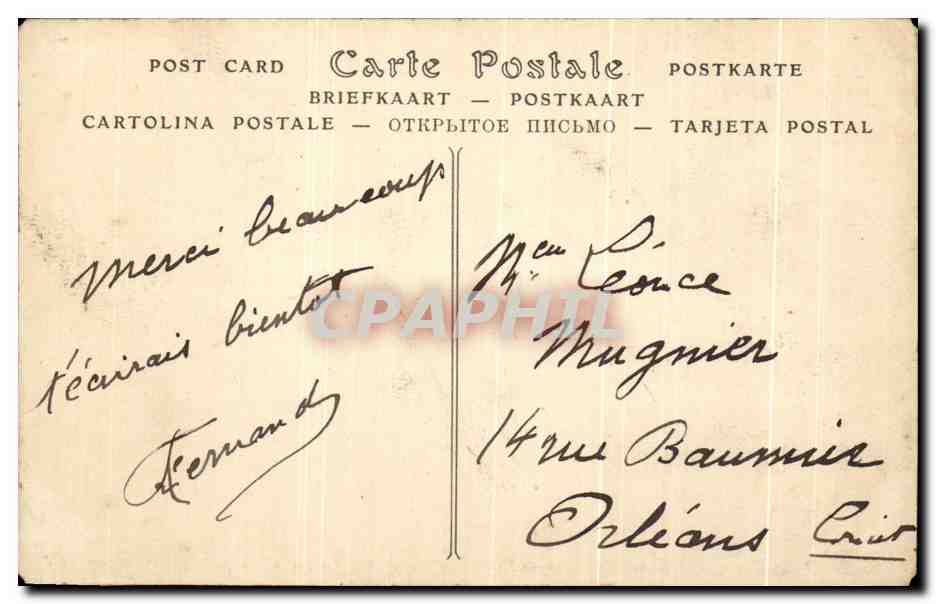 POST CARD Carte Postale POSTKARTE
BRIEFKAART — POSTKAART
CARTOLINA POSTALE — ОТКРЫТОЕ ПИСЬМО — TARJETA POSTAL
Merci beaucoup
t'écrirais bientot
Fernand
Léonce
Mugnier
14 rue Baumier
Orléans Loiret
CPAPHIL